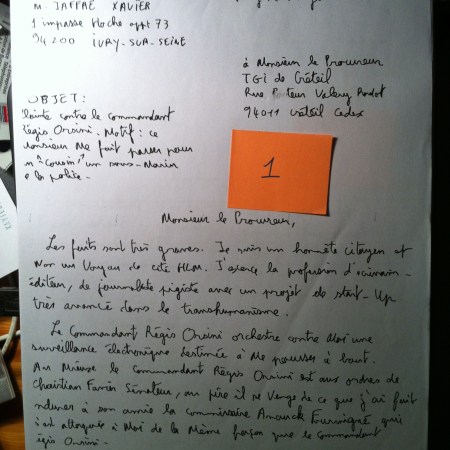 M. JAFFRÉ XAVIER
1 impasse Hoche appt 73
94200 IVRY-SUR-SEINE
à Monsieur le Procureur
TGI de Créteil
Rue Pasteur Valery Radot
94011 Créteil Cedex
OBJET:
plainte contre le commandant
Régis Orsini. Motif: ce
Monsieur Me fait passer pour
un "Cousin" un sous-Marin
de la police.
1
Monsieur le Procureur,
Les faits sont très graves. Je suis un honnête citoyen et
Non un Voyou de cité HLM. J'exerce la profession d'écrivain-
éditeur, de journaliste pigiste avec un projet de start-Up
très avancé dans le transhumanisme.
Le Commandant Régis Orsini orchestre contre Moi une
surveillance électronique destinée à Me pousser à bout.
Au Mieux le Commandant Régis Orsini est aux ordres de
Christian Favier Sénateur, au pire il se Venge de ce que j'ai fait
à son amie la commissaire Anouck Fourmigué qui
s'est attaquée à Moi de la Même façon que le Commandant
Régis Orsini.